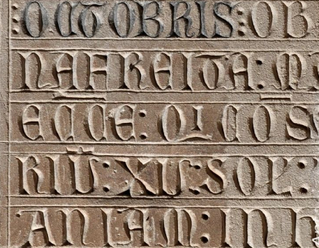 OCTOBRIS: OB
NAFREITA: M
ECCE: QI LO S
RIU: XII: SOL:
ANIAM: IN